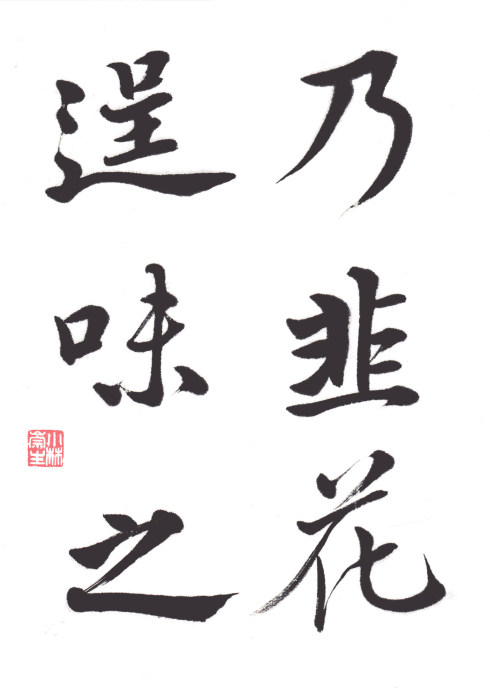 乃韭花
逞味之
小林